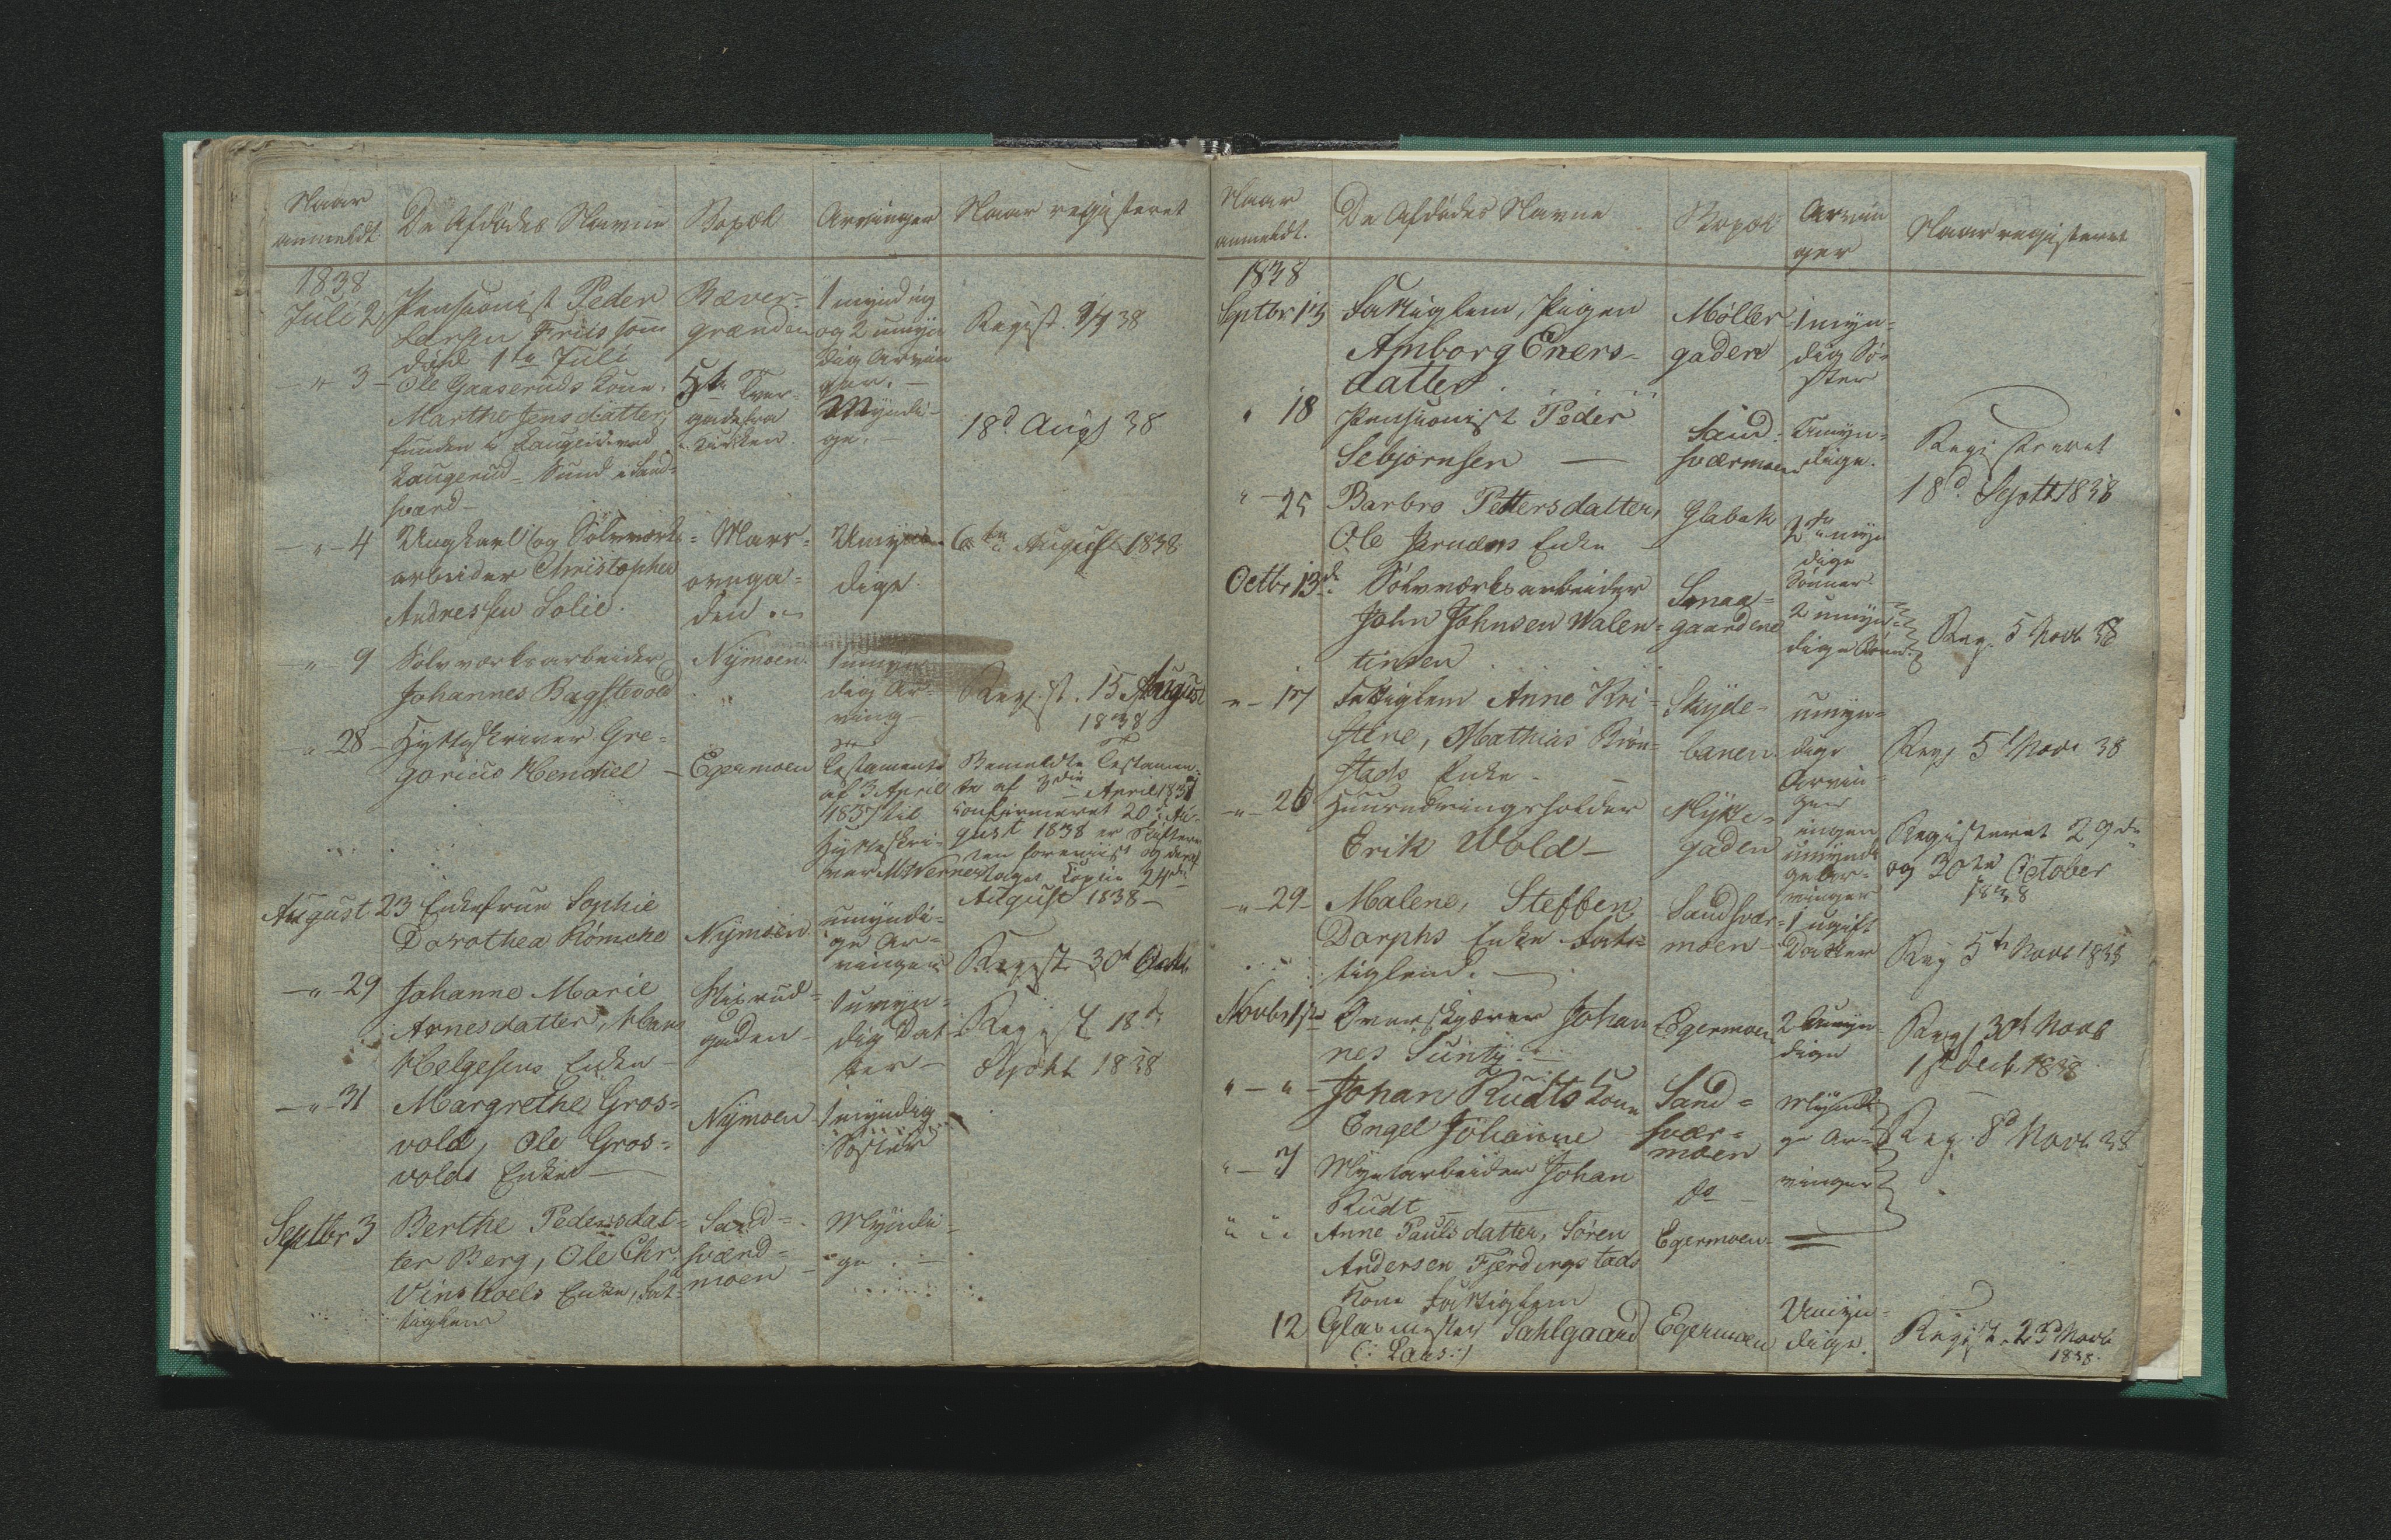 Naar
anmeldt.
De Afdödes Navne
Bopæl
Arvinger
Naar registeret
1838
Juli 2
Pensionist Peder
Larsen Friis som
döde 1te Juli
Bæver-
grænden
1 myndig
og 2 umyn
dig Arvin
ger. –
Regist. 9/7 38
– " 3 –
Ole Gaaseruds Kone
Marthe Jensdatter,
funden i Laugen ved
Laugerud – Sund i Sand-
sværd –
5te Tver-
gade fra
Kirken.
Myndi-
ge. –
18d Augs 38
– " – 4
Ungkarl og Sölvværks-
arbeider Christopher
Andressen Lolie.
Marr-
ovega-
den
Umyn-
dige
6te August 1838
– " – 9
Sölvværksarbeider
Johannes Bagstevold
Nymoen.
"
1 umyn
dig Ar-
ving –
Regist. 15 August
1838
– " 28 –
Hytteskriver Gre-
gorius Henchel –
Egermoen
Testamente
af 3 April
1837 til
Hytteskri-
ver M. Werner
Bemeldte Testamen-
te af 3die April 1837
confirmeret 20d Au-
gust 1838 er Skifteret
ten foreviist og deraf
taget Copie 24de
August 1838 –
August 23
Enkefrue Sophie
Dorothea Kömche
Nymoen
umyndi-
ge Ar-
vinger
Regist. 30t Octb.
– " – 29
Johanne Marie
Arnesdatter, Hans
Helgesens Enke –
Skixrud-
gaden –
1 umyn-
dig Dat
ter –
Regist 18de
Septbr 1838
– " – 31
Margrethe Gros-
vold, Ole Gros-
volds Enke –
Nymoen
1 myndig
Söster
Septbr 3
Berthe Pedersdat-
ter Berg, Ole Chr.
Vinsnoels Enke, Fat-
tiglem
Sand-
sværd-
moen –
Myndi-
ge. –
Naar
anmeldt.
De Afdödes Navne
Bopæl
Arvin
ger
Naar registeret
1838
Septbr 15
Fattiglem, Pigen
Amborg Eners-
datter
Möller
gaden
1 myn-
dig Sö-
ster
" 18
Pensionist Peder
Sebjørnsen –
Sand-
sværmoen
Umyn-
dige.
Registreret
18d Septb 1838
" – 25
Barbro Pettersdatter,
Ole Enke –
Glabak
2 umyn
dige
Sönner
Octbr 13de
Sölvværksarbeider
John Johnsen Walen-
tinsen
Smaa-
gaardene
2 umyn-
dige Börn.
Reg. 5 Novb 38
– " – 17
Fattiglem Anne Kri-
stine, Mathias Brön-
stads Enke –
Skyde-
banen
umyn-
dige
Arvin-
ger
Reg 5t Novr 38
– " – 26
Huusnæringsholder
Erik Wold –
Hytte-
gaden
ingen
umyndi
ge Ar-
vinger
Registeret 29de
og 30te October
1838
– " – 29 –
Malene, Steffen
Dorphs Enke Fat-
tiglem. –
Sandsvær-
moen –
1 ugift
Datter
Reg 5te Novb 1838
Novbr 1ste
Overskjærer Johan
nes Suntz. –
Egermoen
2 Umyn-
dige
Regs 30te Novb
1st Decb. 1838
" – " –
Johan Rudts Kone
Engel Johanne
Sand-
svær-
moen
Myndi
ge Ar-
vinger
Reg. 8d Novb 38
" – 7
Myntarbeider Johan
Rudt
do –
" "
Anne Paulsdatter, Sören
Andersen Fjerdingstads
Kone Fattiglem
Egermoen.
12
Glasmester Sahlgaard
(: Lars :)
Egermoen
Umyn-
dige.
Regist. 23d Novb
1838.